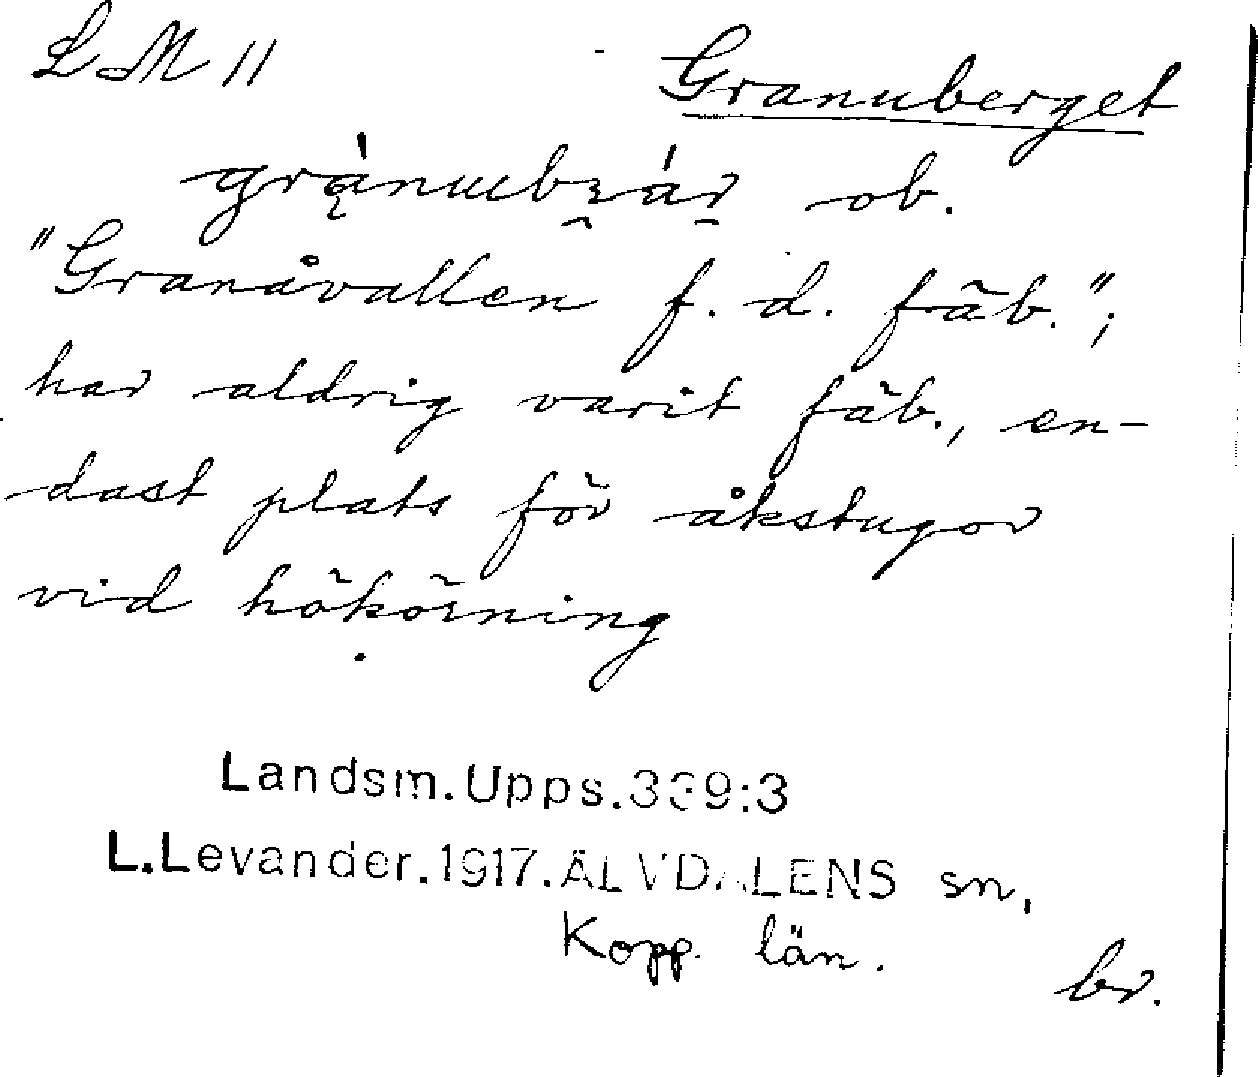 LM 11 Granuberget
grą̀nubᴣár ob.
"Granåvallen f. d. fäb.";
har aldrig varit fäb., en-
dast plats för åkstugor
vid hökörning
Landsm.Upps.339:3
L.Levander.1917.ÄLVDALENS sn,
Kopp. län.
br.